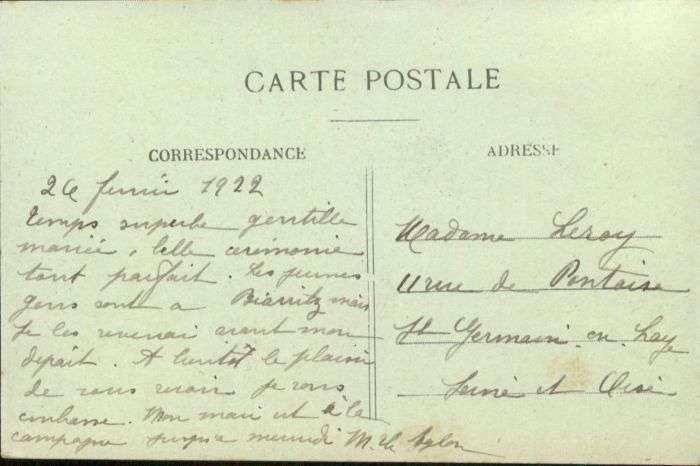 CARTE POSTALE
CORRESPONDANCE
ADRESSE
26 1922
temps superbe gentille
mariée, belle cérémonie
tout parfait. Les jeunes
gens sont a Biarritz mais
je les reverrai avant mon
depart. A bientôt le plaisir
de vous revoir je vous
embrasse. Mon mari est à la
campagne jusqu'a mercredi
Madame Leroy
11 rue de Pontoise
St Germain en Laye
Seine et Oise